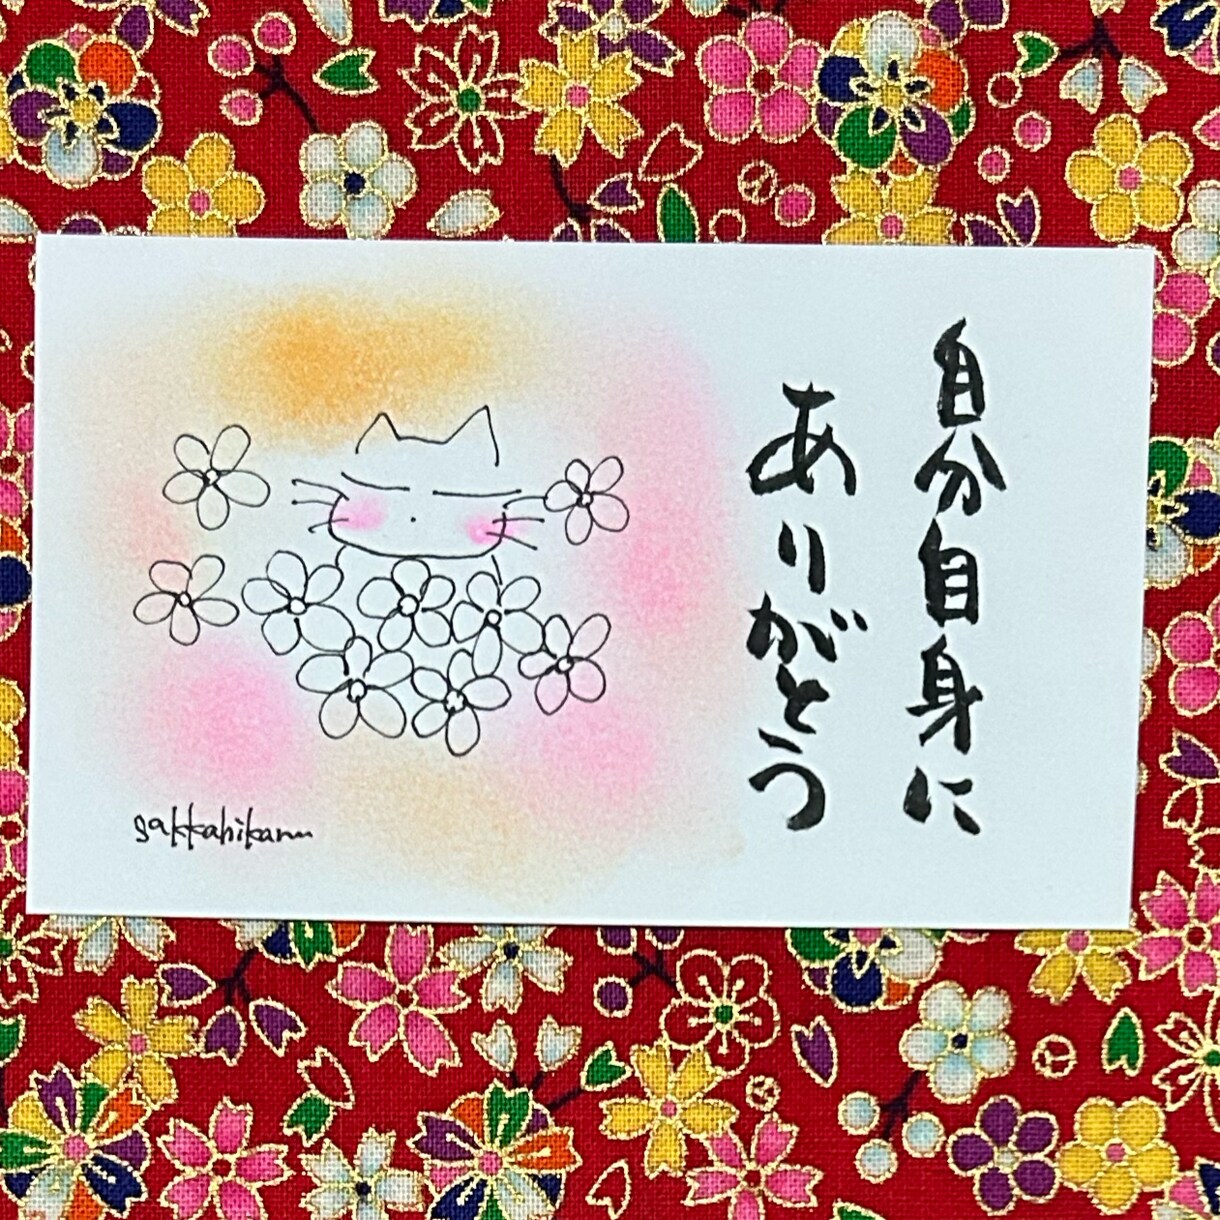 自分自身に
ありがとう
sakkahikaru